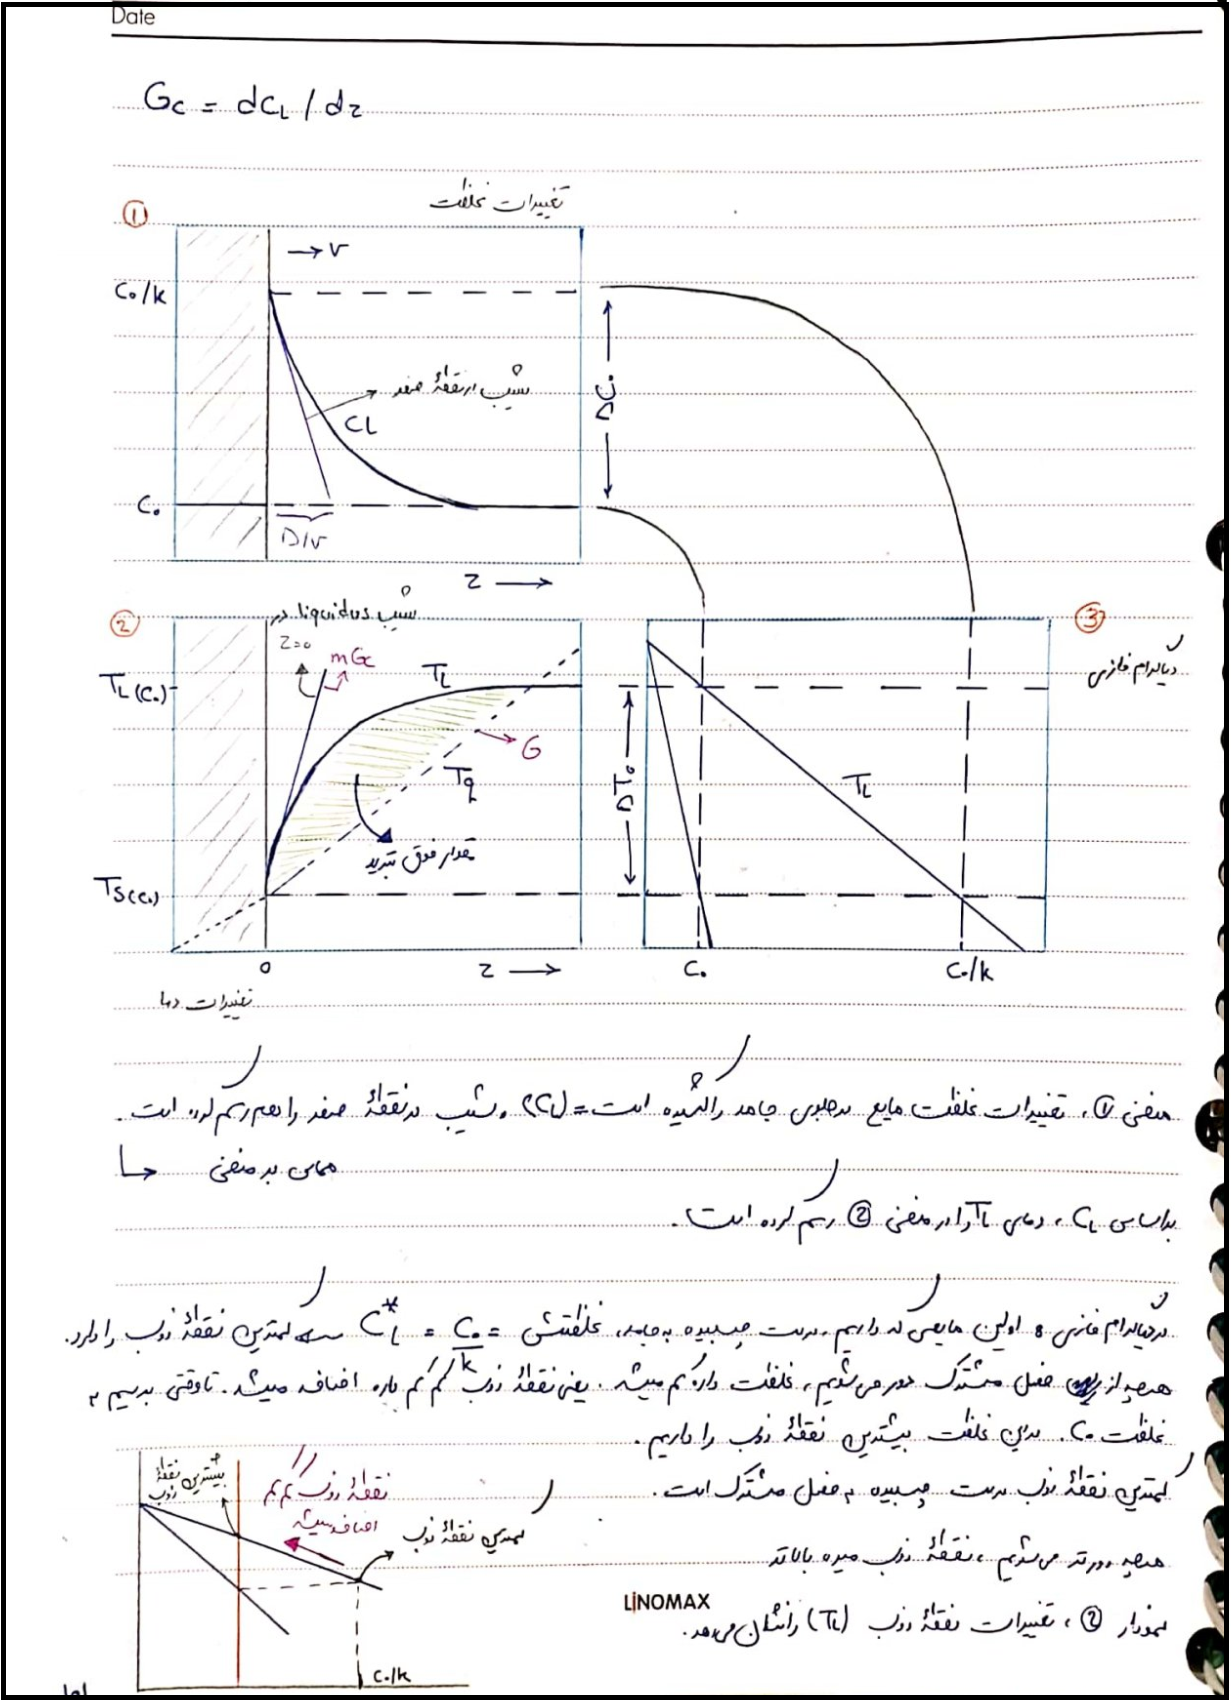 Date
Gc = dCL / dz
①
تغییرات غلظت
→ v
C₀/k
شیب در نقطهٔ صفر
CL
ΔC₀
C₀
D/v
z →
②
شیب liquidus در
z=0
mGc
TL
③
دیاگرام فازی
TL(C₀)
G
Tq
ΔT₀
TL
مقدار فوق تبرید
TS(C₀)
0
z →
C₀
C₀/k
تغییرات دما
منحنی ①، تغییرات غلظت مایع در جلوی جامد را کشیده است = (CL) و شیب در نقطهٔ صفر را هم رسم کرده است.
مماس بر منحنی
براساس CL، دمای TL را در منحنی ② رسم کرده است.
در دیاگرام فازی، اولین مایعی که داریم، درست چسبیده به جامد، غلظتش = C₀/k = CL* → کمترین نقطهٔ ذوب را دارد.
هرچه از فصل مشترک دور می‌شویم، غلظت داره کم میشه. یعنی نقطهٔ ذوب کم کم داره اضافه میشه. تا وقتی برسیم به
غلظت C₀. در این غلظت بیشترین نقطهٔ ذوب را داریم.
کمترین نقطهٔ ذوب درست چسبیده به فصل مشترک است.
هرچه دورتر می‌شویم، نقطهٔ ذوب میره بالاتر
نمودار ②، تغییرات نقطهٔ ذوب (TL) را نشان می‌دهد.
بیشترین نقطهٔ ذوب
نقطهٔ ذوب کم کم
اضافه میشه
کمترین نقطهٔ ذوب
C₀/k
LINOMAX